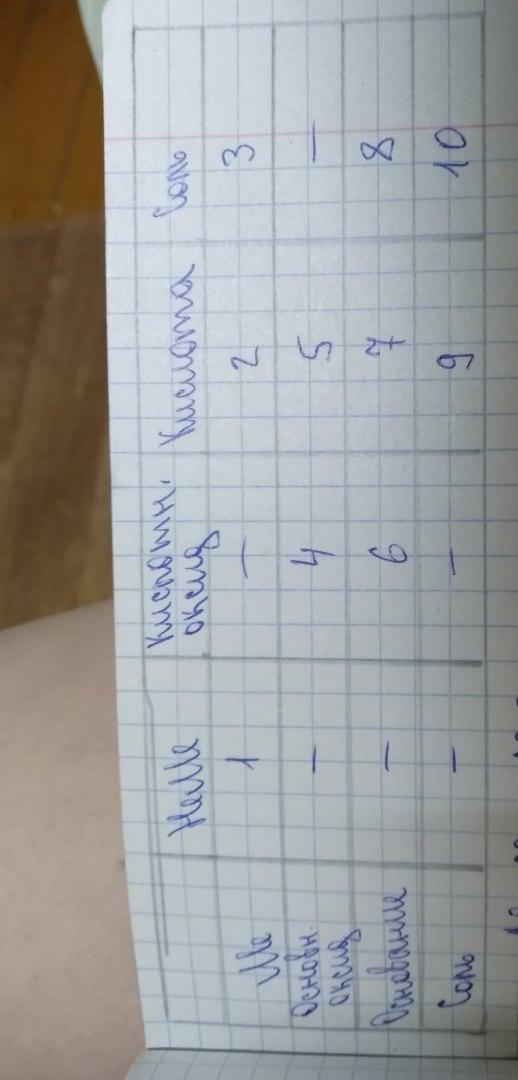 НеМе Кислотн. оксид Кислота Соль
Ме 1 — 2 3
Основн. оксид — 4 5 —
Основание — 6 7 8
Соль — — 9 10